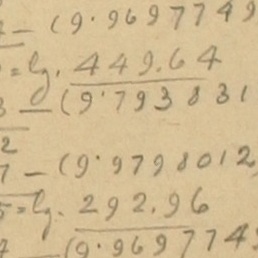 — (9.9697749
= lg. 449.64
3 — (9.793831
2
7 — (9.9798012
5 = lg. 292.96
— (9.969774